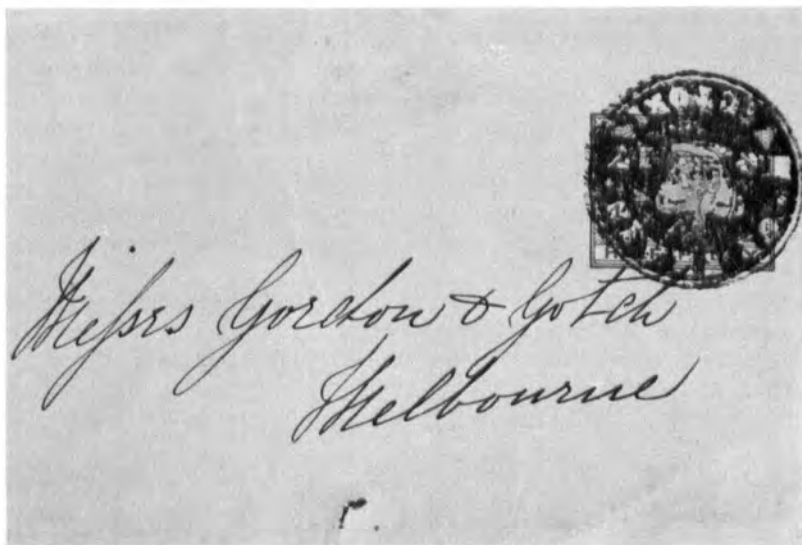 Messrs Gordon & Gotch
Melbourne